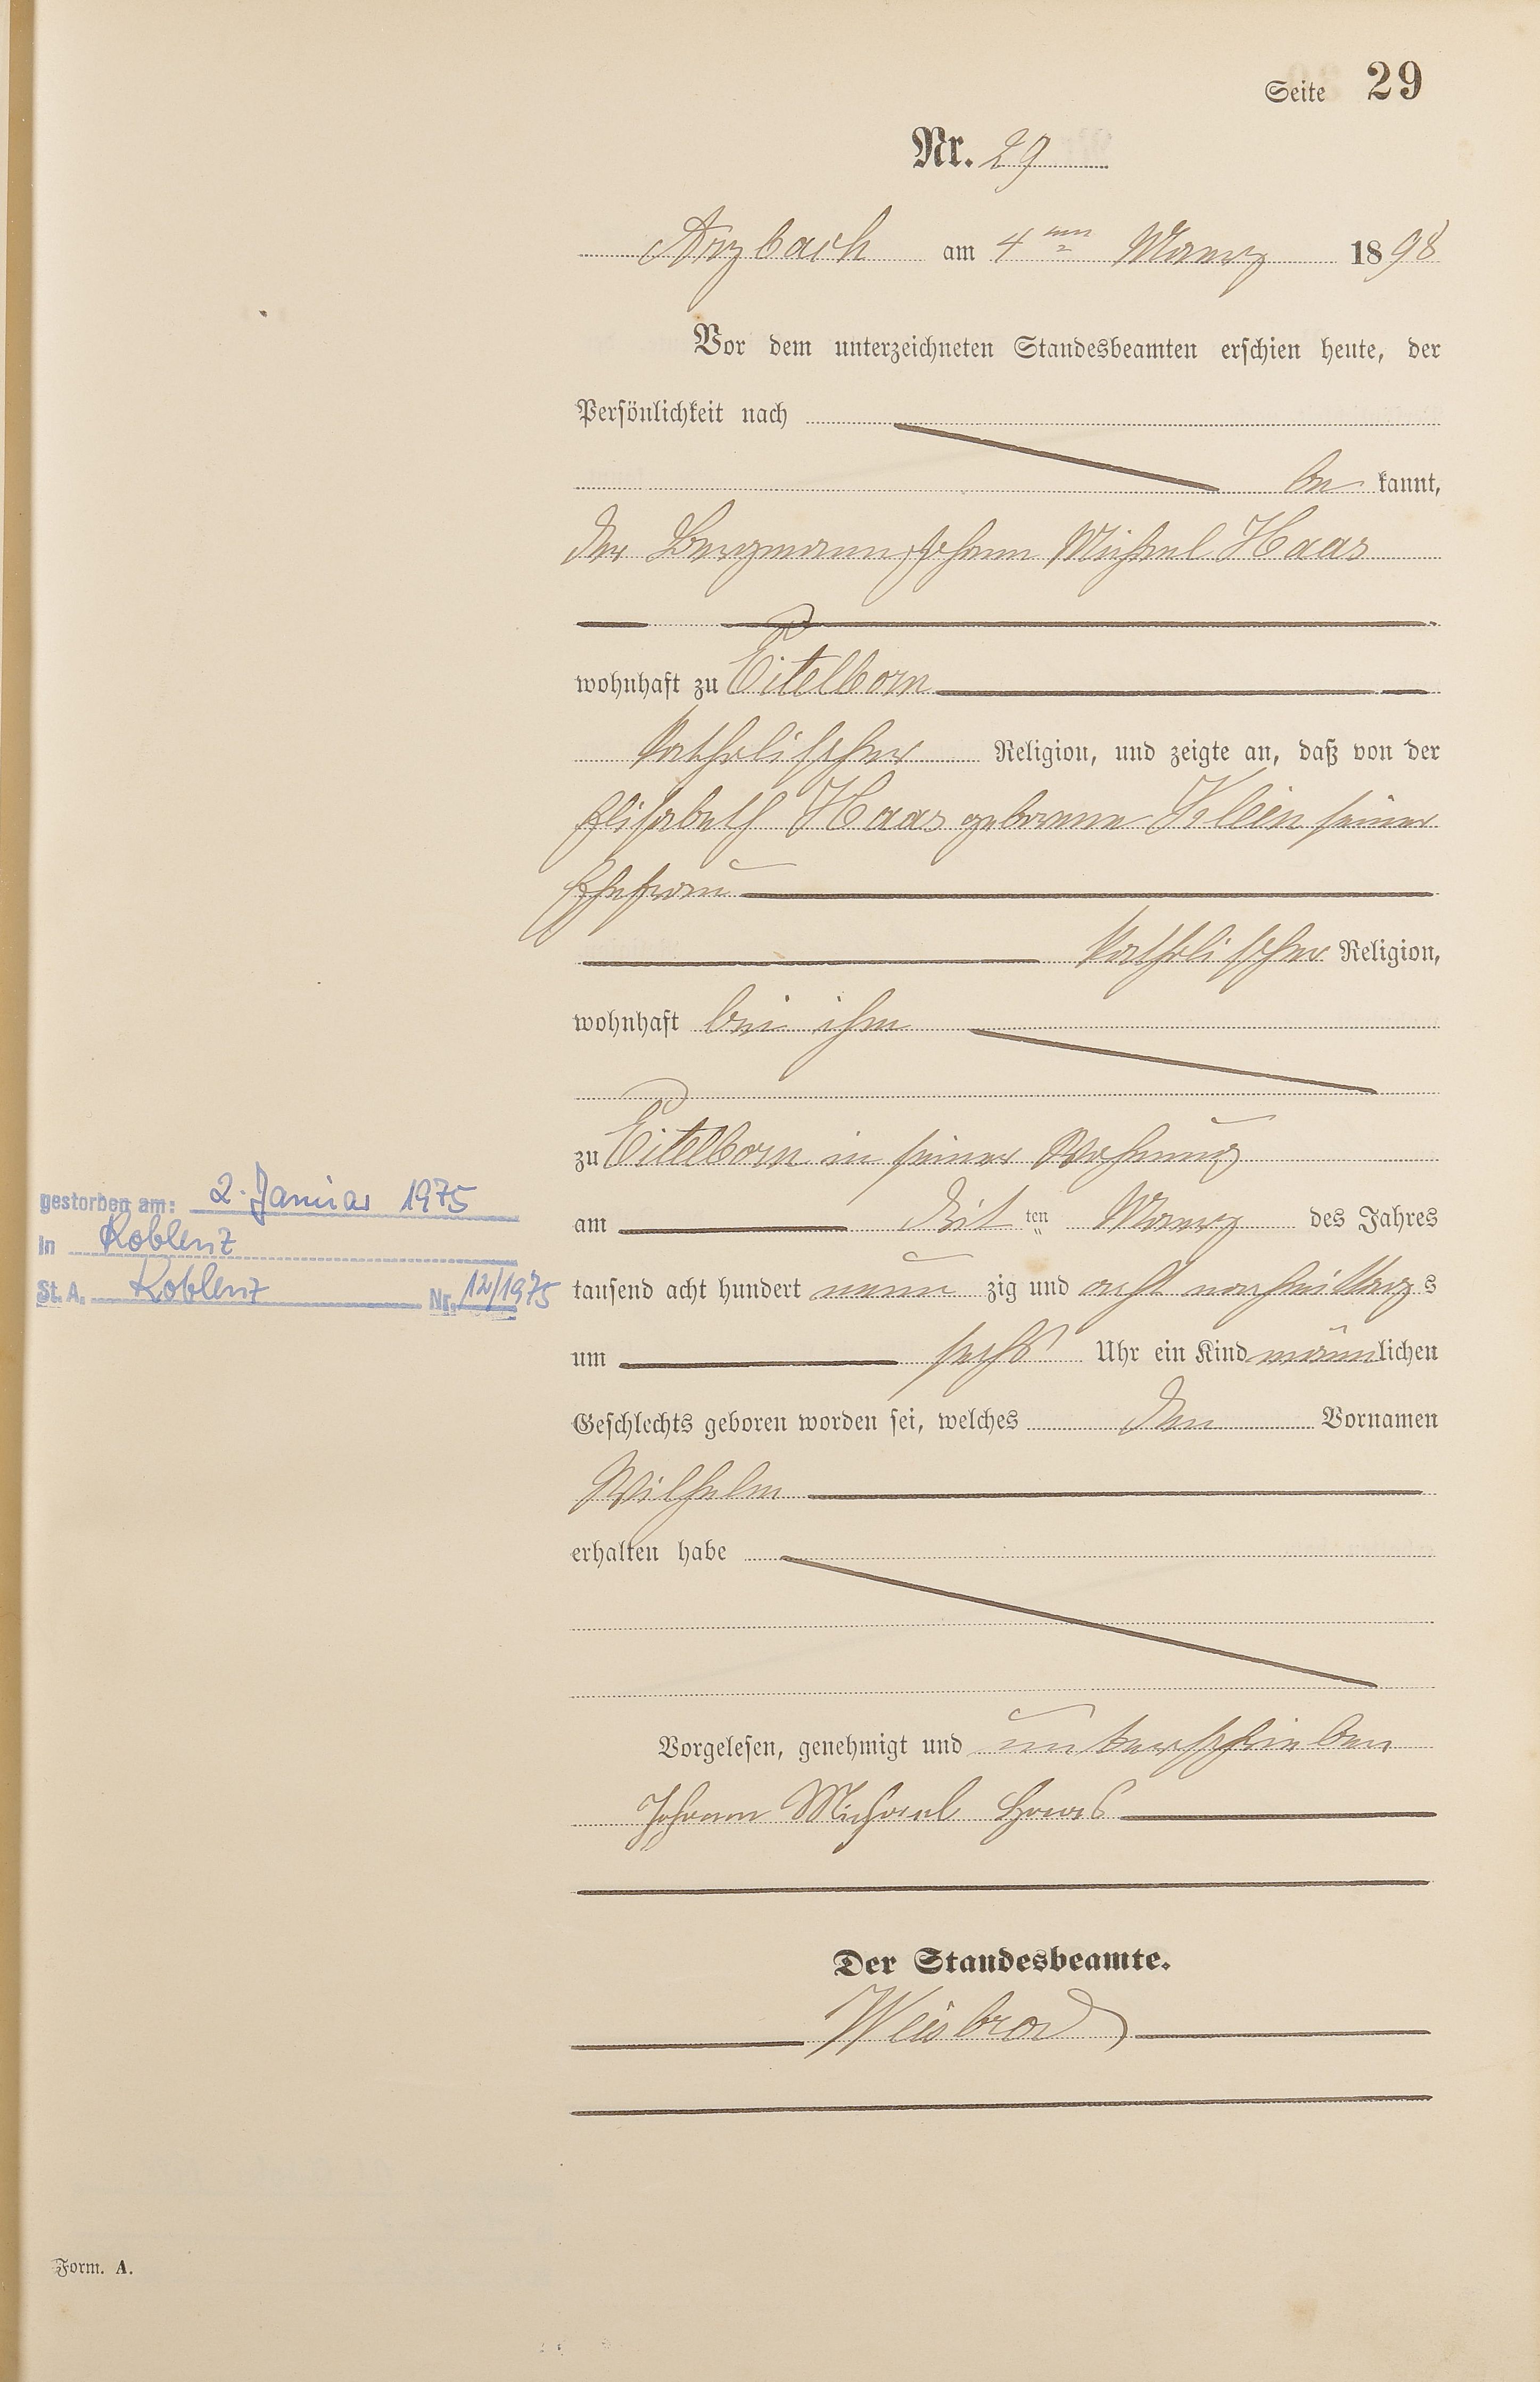 Seite 29
Nr. 29
Arzbach am 4ten Maerz 1898
Vor dem unterzeichneten Standesbeamten erschien heute, der
Persönlichkeit nach
be kannt,
der Bergmann Johann Michael Haas
wohnhaft zu Eitelborn
katholischer Religion, und zeigte an, daß von der
Elisabeth Haas geborene Klein seiner
Ehefrau
katholischer Religion,
wohnhaft bei ihm
zu Eitelborn in seiner Wohnung
am ten Maerz des Jahres
tausend acht hundert neun zig und acht nachmittags
um sechs Uhr ein Kind männlichen
Geschlechts geboren worden sei, welches den Vornamen
Wilhelm
erhalten habe
Vorgelesen, genehmigt und unterschrieben
Johann Michael Haas
Der Standesbeamte.
Weisbrod
gestorben am: 2. Januar 1975
in Koblenz
St. A. Koblenz Nr. 12/1975
Form. A.